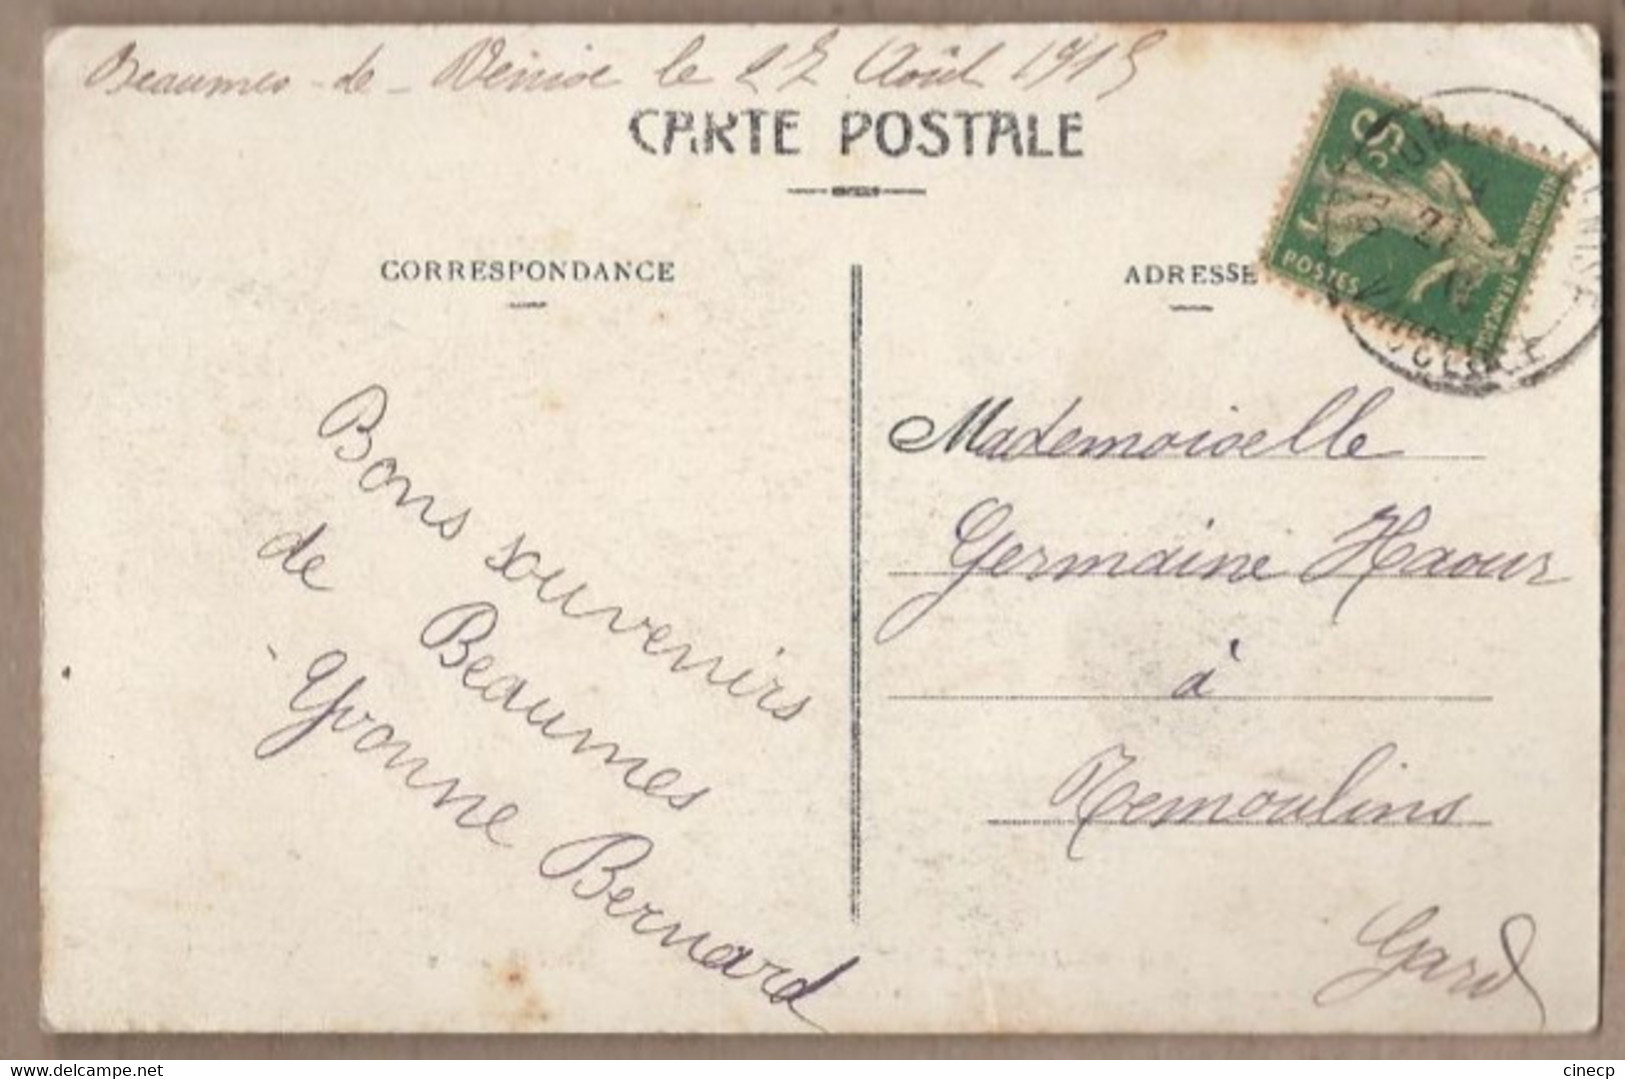 Beaumes-de-Venise le 27 Août 1915
CARTE POSTALE
CORRESPONDANCE
ADRESSE
POSTES
Bons souvenirs
de Beaumes
Yvonne Bernard
Mademoiselle
Germaine Haour
à
Remoulins
Gard
cinecp